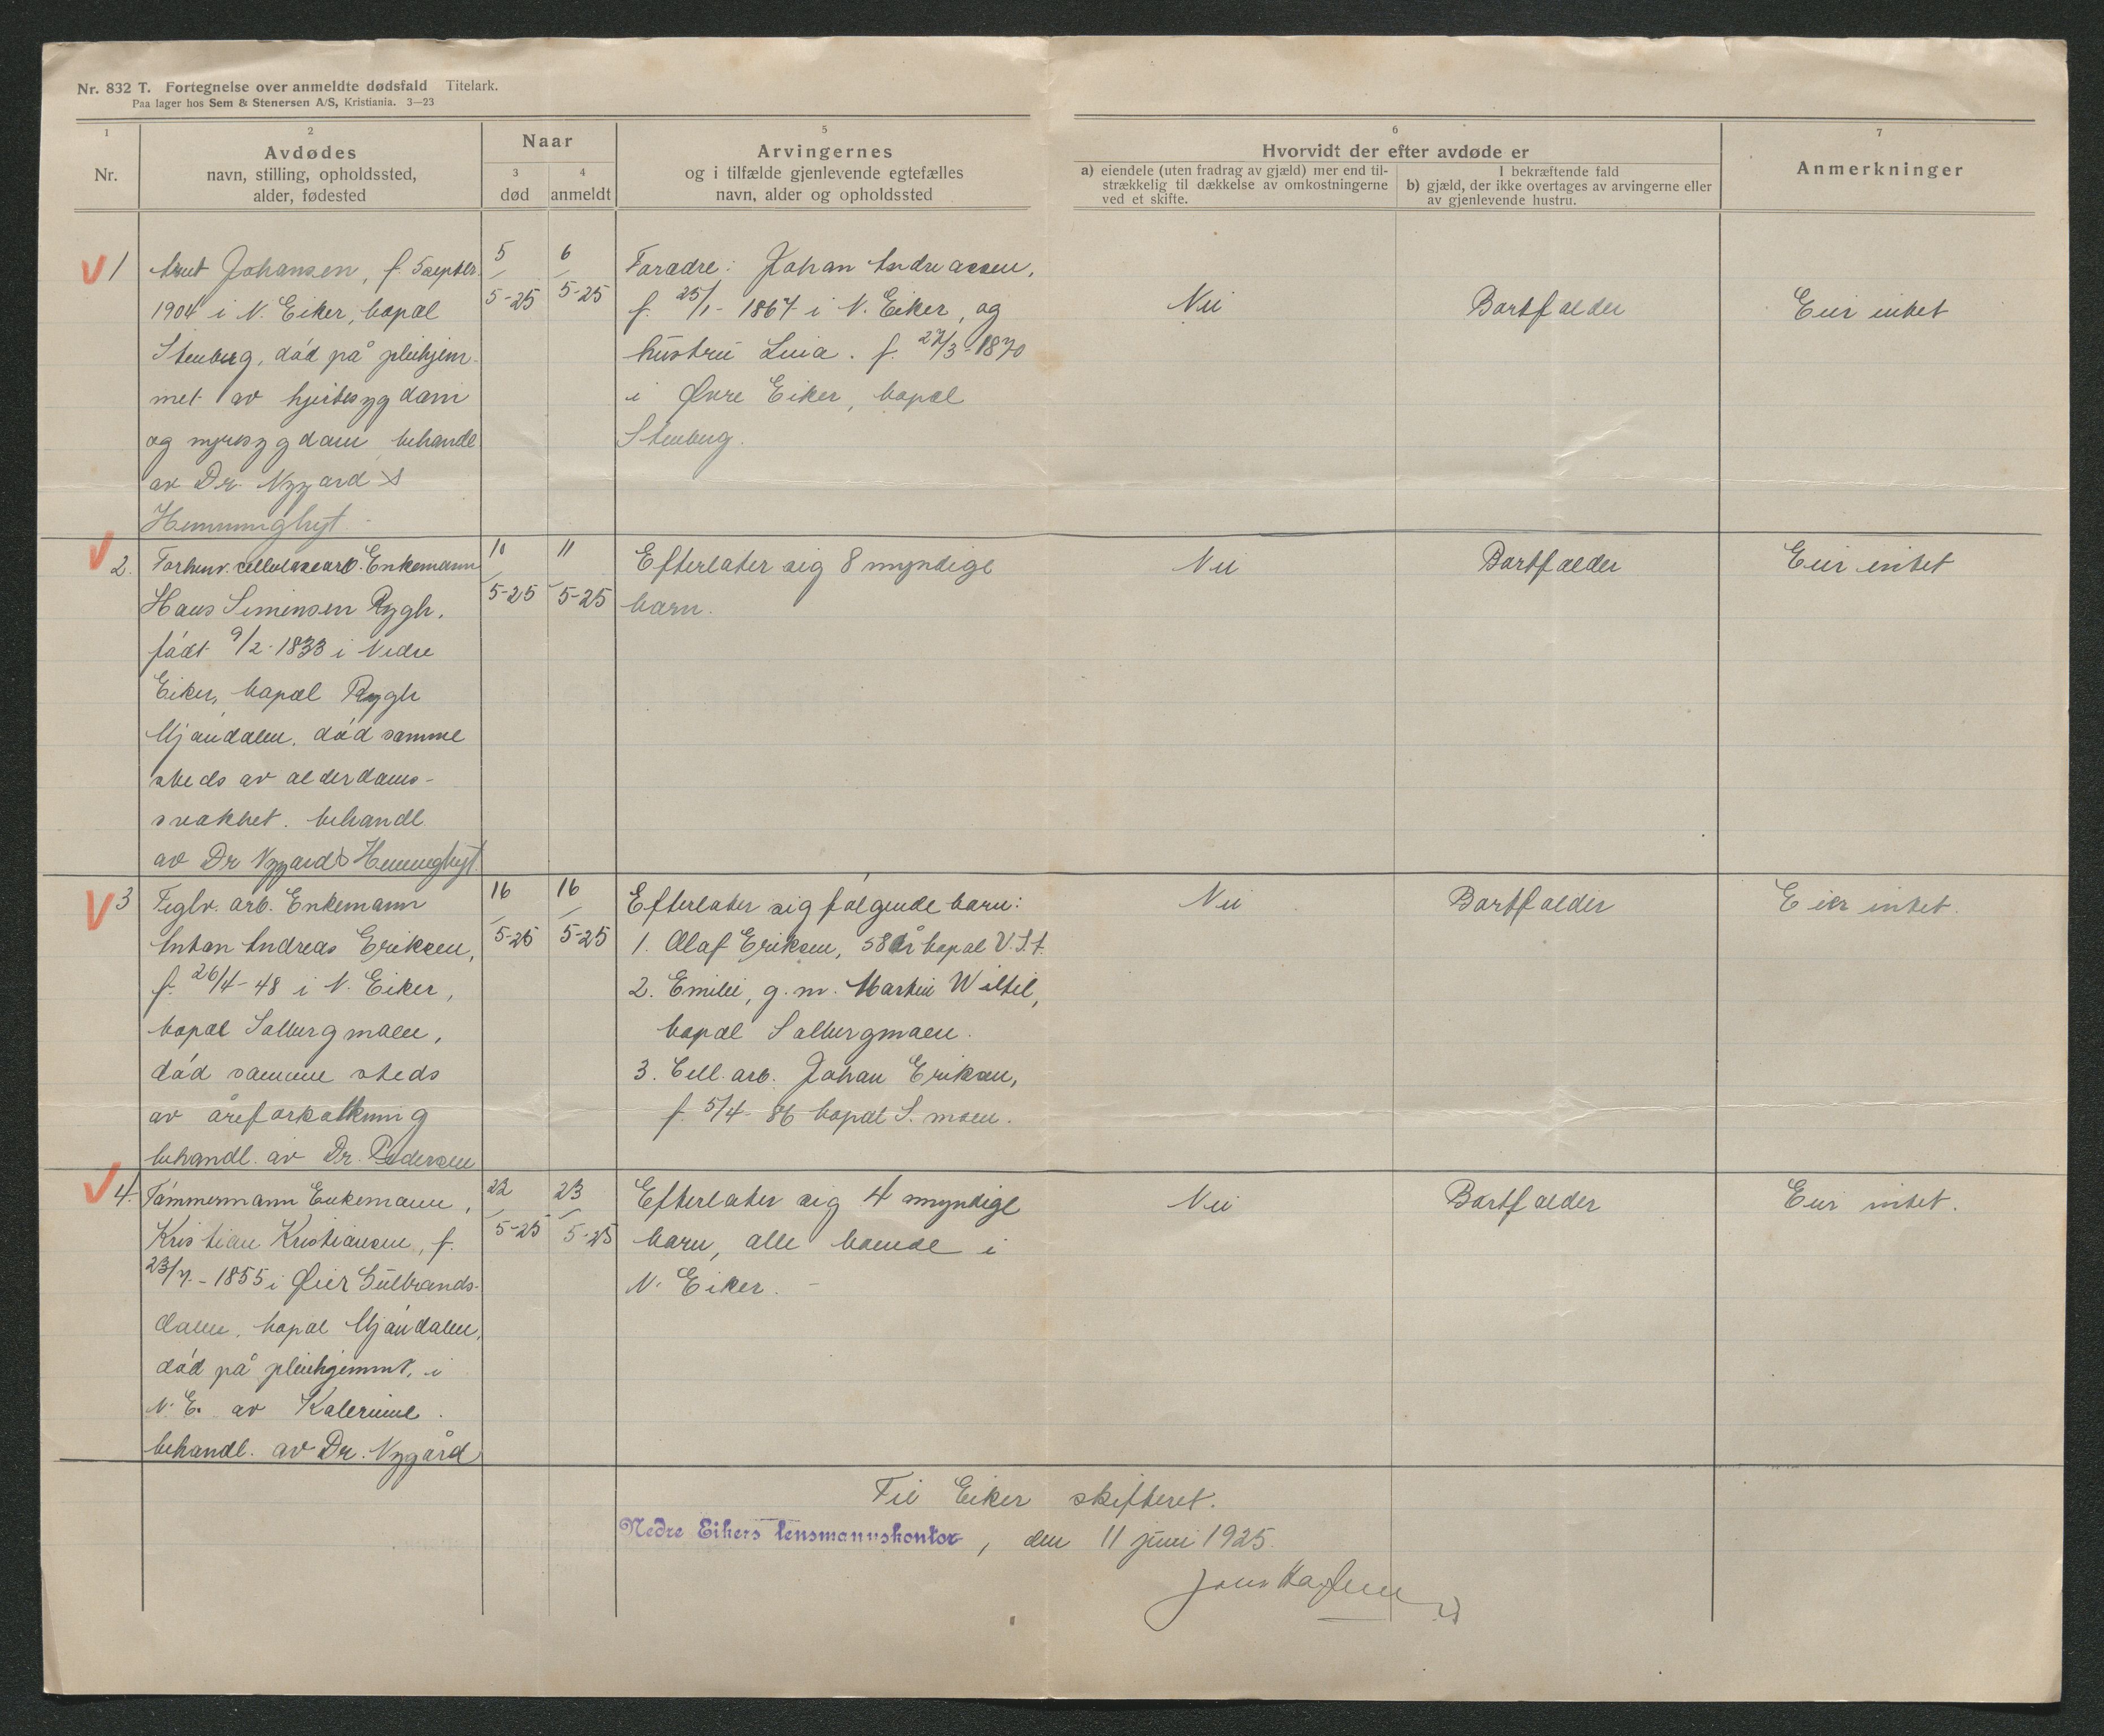 Nr. 832 T. Fortegnelse over anmeldte dødsfald Titelark.
Paa lager hos Sem & Stenersen A/S, Kristiania. 3—23
1
Nr.
2
Avdødes
navn, stilling, opholdssted,
alder, fødested
Naar
3
død
4
anmeldt
5
Arvingernes
og i tilfælde gjenlevende egtefælles
navn, alder og opholdssted
6
Hvorvidt der efter avdøde er
a) eiendele (uten fradrag av gjæld) mer end til-
strækkelig til dækkelse av omkostningerne
ved et skifte.
I bekræftende fald
b) gjæld, der ikke overtages av arvingerne eller
av gjenlevende hustru.
7
Anmerkninger
1
Johansen, f. 5 septbr.
1904 i N. Eiker, bopæl
Stenberg, död på pleiehjem
met av hjertesygdom
og nyresygdom, behandl
av Dr. Nygaard
5
5-25
6
5-25
Forædre: Johan Andreassen,
f. 25/1- 1867 i N. Eiker, og
hustru Lina. f. 27/3-1870
i Øvre Eiker, bopæl
Stenberg.
Nei
Bortfalder
Eier intet
2.
Forhenv. cellulosearb. Enkemann
Hans Simensen Rygh,
födt 9/2-1833 i Nedre
Eiker, bopæl Rygh
Mjöndalen, död samme
steds av alderdoms-
svakhet. behandl
av Dr Nygaard
10
5-25
11
5-25
Efterlater sig 8 myndige
barn.
Nei
Bortfalder
Eier intet
3
Teglv. arb. Enkemann
Anton Andreas Eriksen,
f. 26/4-48 i N. Eiker,
bopæl Solbergmoen,
död samme steds
av åreforkalkning
behandl. av Dr. Pedersen
16
5-25
16
5-25
Efterlater sig fölgende barn:
1. Olaf Eriksen, 58 år bopæl V.S.t.
2. Emilie, g. m. Martin
bopæl Solbergmoen.
3. Cell. arb. Johan Eriksen,
f. 5/4- 86 bopæl S. moen.
Nei
Bortfalder
Eier intet.
4.
Tömmermann Enkemann,
Kristian Kristiansen, f.
23/7.-1855 i Öier Gulbrands-
dalen, bopæl Mjöndalen,
död på pleiehjemmet, i
N. E. av
behandl. av Dr. Nygård
22
5-25
23
5-25
Efterlater sig 4 myndige
barn, alle boende i
N. Eiker. -
Nei
Bortfalder
Eier intet.
Til Eiker skifteret.
Nedre Eikers lensmannskontor, den 11 juni 1925.